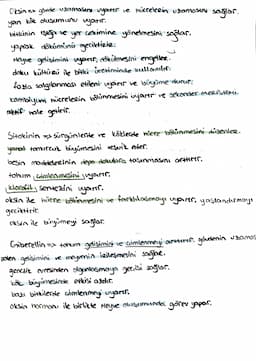 Oksin → gövde uzamasını uyarır ve hücrelerin uzamasını sağlar.
yan kök oluşumunu uyarır.
bitkinin ışığa ve yer çekimine yönelmesini sağlar.
yaprak dökümünü geciktirir.
meyve gelişimini uyarır, dökülmesini engeller.
doku kültürü ile bitki üretiminde kullanılır.
fazla salgılanması etileni uyarır ve büyüme durur.
kambiyum hücrelerinin bölünmesini uyarır ve sekonder
aktif hale getirir.
Sitokinin → sürgünlerde ve köklerde hücre bölünmesini düzenler.
yanal tomurcuk büyümesini teşvik eder.
besin maddelerinin depo dokulara taşınmasını arttırır.
tohum çimlenmesini uyarır.
klorofil sentezini uyarır.
oksin ile hücre bölünmesini ve farklılaşmayı uyarır, yaşlandırmayı
geciktirir.
oksin ile büyümeyi sağlar.
Giberellin → tohum gelişimini ve çimlenmeyi arttırır. gövdenin uzaması
gelişimini ve meyvenin irileşmesini sağlar.
gençlik evresinden olgunlaşmaya geçişi sağlar.
kök büyümesinde etkisi azdır.
bazı bitkilerde çimlenmeyi uyarır.
oksin hormonu ile birlikte meyve oluşumunda görev yapar.